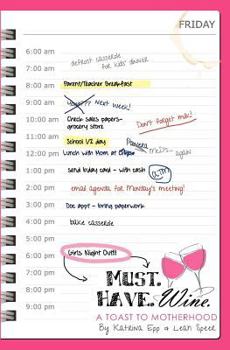 FRIDAY
6:00 am
defrost casserole
for kids' dinner
7:00 am
8:00 am Parent/Teacher Breakfast
9:00 am Next Week!
10:00 am Check sales papers-
grocery store
Don't forget milk!
11:00 am School 1/2 day
Panera
12:00 pm Lunch with Mom at
again
1:00 pm send birthday card - with cash
ATM
2:00 pm email agenda for Monday's meeting!
3:00 pm Doc appt - bring paperwork
4:00 pm bake casserole
5:00 pm
6:00 pm Girls Night Out!!
7:00 pm
8:00 pm
9:00 pm
MUST.
HAVE. Wine.
A TOAST TO MOTHERHOOD
By Katrina Epp & Leah Speer